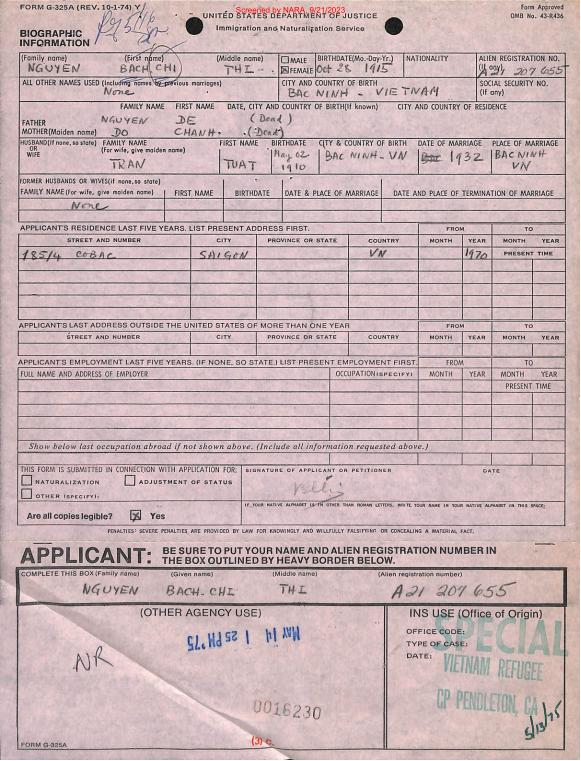 FORM G-325A (REV. 10-1-74) Y
Screened by NARA, 9/21/2023
Form Approved
OMB No. 43-R436
UNITED STATES DEPARTMENT OF JUSTICE
Immigration and Naturalization Service
BIOGRAPHIC
INFORMATION
(Family name) (First name) (Middle name) MALE FEMALE BIRTHDATE(Mo.-Day-Yr.) NATIONALITY ALIEN REGISTRATION NO. (If any)
NGUYEN BACH CHI THI Oct 28 1915 A21 207 655
ALL OTHER NAMES USED (Including names by previous marriages) CITY AND COUNTRY OF BIRTH SOCIAL SECURITY NO. (If any)
None BAC NINH - VIETNAM
FAMILY NAME FIRST NAME DATE, CITY AND COUNTRY OF BIRTH(If known) CITY AND COUNTRY OF RESIDENCE
FATHER NGUYEN DE (Dead)
MOTHER(Maiden name) DO CHANH (Dead)
HUSBAND(If none, so state) OR WIFE FAMILY NAME (For wife, give maiden name) FIRST NAME BIRTHDATE CITY & COUNTRY OF BIRTH DATE OF MARRIAGE PLACE OF MARRIAGE
TRAN TUAT May 02 1910 BAC NINH-VN 1932 BAC NINH VN
FORMER HUSBANDS OR WIVES(If none, so state)
FAMILY NAME (For wife, give maiden name) FIRST NAME BIRTHDATE DATE & PLACE OF MARRIAGE DATE AND PLACE OF TERMINATION OF MARRIAGE
None
APPLICANT'S RESIDENCE LAST FIVE YEARS. LIST PRESENT ADDRESS FIRST. FROM TO
STREET AND NUMBER CITY PROVINCE OR STATE COUNTRY MONTH YEAR MONTH YEAR
185/4 COBAC SAIGON VN 1970 PRESENT TIME
APPLICANT'S LAST ADDRESS OUTSIDE THE UNITED STATES OF MORE THAN ONE YEAR FROM TO
STREET AND NUMBER CITY PROVINCE OR STATE COUNTRY MONTH YEAR MONTH YEAR
APPLICANT'S EMPLOYMENT LAST FIVE YEARS. (IF NONE, SO STATE.) LIST PRESENT EMPLOYMENT FIRST. FROM TO
FULL NAME AND ADDRESS OF EMPLOYER OCCUPATION (SPECIFY) MONTH YEAR MONTH YEAR
PRESENT TIME
Show below last occupation abroad if not shown above. (Include all information requested above.)
THIS FORM IS SUBMITTED IN CONNECTION WITH APPLICATION FOR: SIGNATURE OF APPLICANT OR PETITIONER DATE
NATURALIZATION ADJUSTMENT OF STATUS
OTHER (SPECIFY):
IF YOUR NATIVE ALPHABET IS IN OTHER THAN ROMAN LETTERS, WRITE YOUR NAME IN YOUR NATIVE ALPHABET IN THIS SPACE:
Are all copies legible? X Yes
PENALTIES: SEVERE PENALTIES ARE PROVIDED BY LAW FOR KNOWINGLY AND WILLFULLY FALSIFYING OR CONCEALING A MATERIAL FACT.
APPLICANT: BE SURE TO PUT YOUR NAME AND ALIEN REGISTRATION NUMBER IN
THE BOX OUTLINED BY HEAVY BORDER BELOW.
COMPLETE THIS BOX (Family name) (Given name) (Middle name) (Alien registration number)
NGUYEN BACH-CHI THI A21 207 655
(OTHER AGENCY USE) INS USE (Office of Origin)
MAY 14 1 25 PM '75
NR
OFFICE CODE:
TYPE OF CASE:
DATE:
SPECIAL
VIETNAM REFUGEE
CP PENDLETON, CA
5/13/75
0016230
(3) C.
FORM G-325A